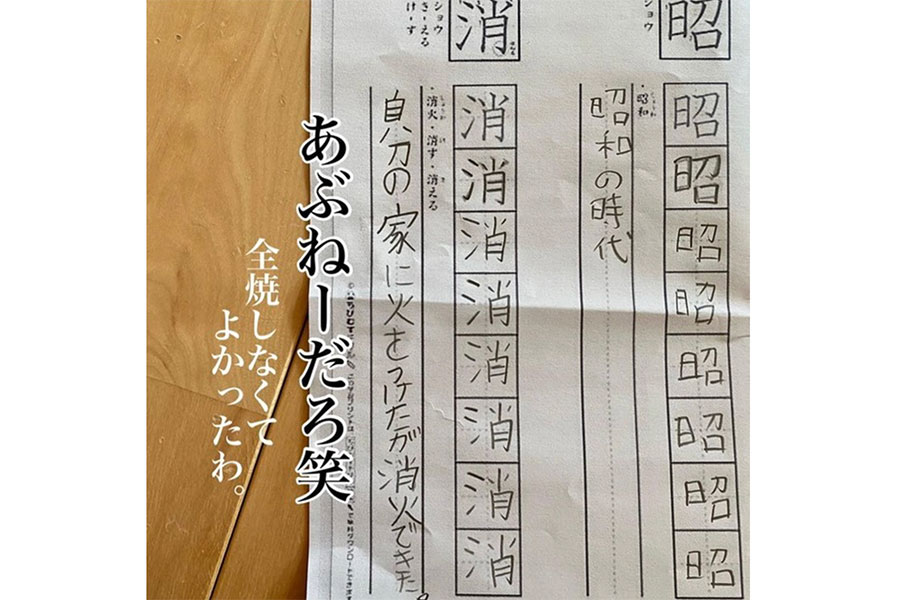 昭
ショウ
昭
昭
昭
昭
昭
昭
昭
昭
・昭和
しょうわ
昭和の時代
消
ショウ
き-える
け-す
消
消
消
消
消
消
消
消
・消火・消す・消える
しょうか け き
自分の家に火をつけたが消火できた。
あぶねーだろ笑
全焼しなくて
よかったわ。